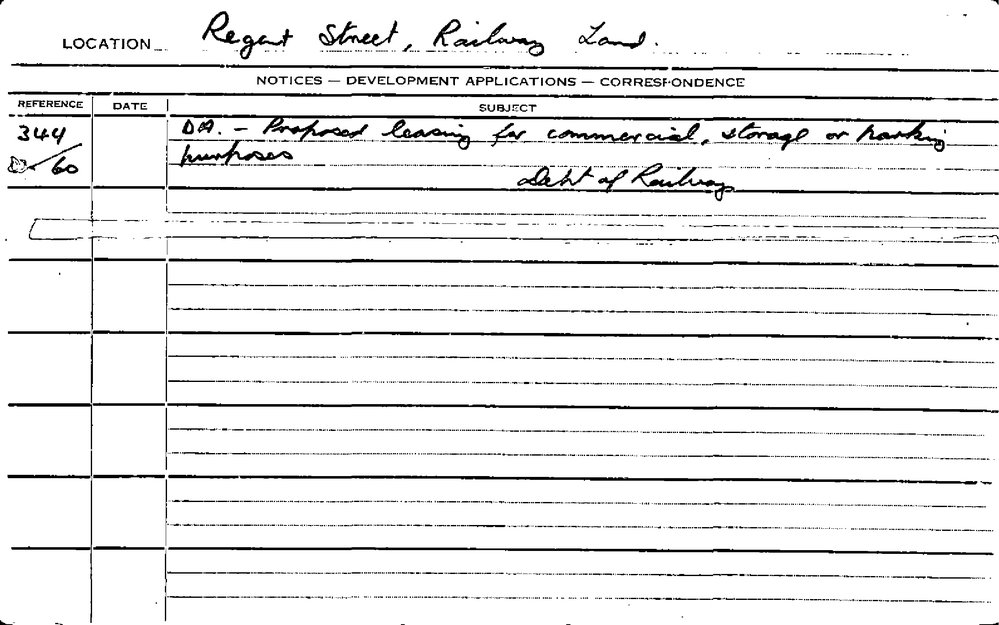 LOCATION Regent Street, Railway Land.
NOTICES — DEVELOPMENT APPLICATIONS — CORRESPONDENCE
REFERENCE DATE SUBJECT
344 DA. - Proposed leasing for commercial, storage or parking
/60 purposes
Dept of Railways